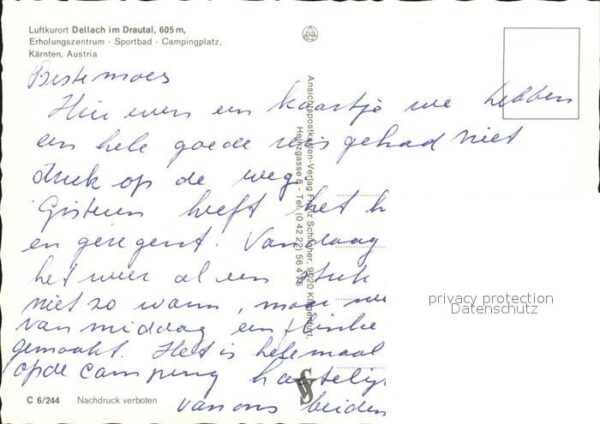 Luftkurort Dellach im Drautal, 605 m,
Erholungszentrum - Sportbad - Campingplatz.
Kärnten, Austria
Beste moes
Hier even een kaartje we hebben
een hele goede reis gehad niet
druk op de weg.
Gisteren heeft het h
en geregent. Vandaag
het weer al een stuk
niet zo warm, maar we
van middag een flinke
gemaakt. Het is helemaal
op de camping hartelij
van ons beiden
C 6/244 Nachdruck verboten
Ansichtspostkarten-Verlag Franz Schilcher, 9020 Klagenfurt,
Tel. (0 42 22) 56 4 75
privacy protection
Datenschutz